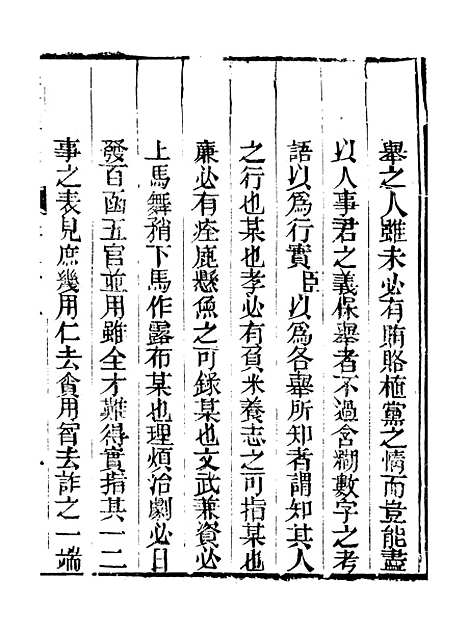 舉之人雖未必有賄賂植黨之情而豈能盡
以人事君之義保舉者不過含糊數字之考
語以爲行實臣以爲各舉所知者謂知其人
之行也某也孝必有負米養志之可指某也
廉必有瘞鹿懸魚之可錄某也文武兼資必
上馬舞矟下馬作露布某也理煩治劇必日
發百函五官並用雖全才難得實指其一二
事之表見庶幾用仁去貪用智去詐之一端